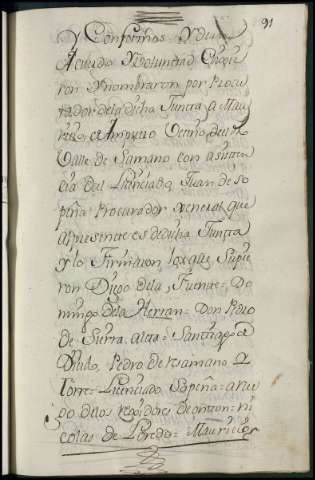 91
y Conformes
Acuerdo y Voluntad
ron y nombraron por Procu
rador dela dicha Junta a Mau
rizio Ampuero Vecino del
Valle de Samano con asisten
cia del Licenciado Juan de So
peña Procurador xeneral que
al presente es de dicha Junta
y lo firmaron los que Supie
ron Diego dela Fuente = Do
mingo dela Herran = Don Pedro
de Sierra alta = Santiago de
Pedro de Samano
Torre = Licenciado Sopeña =
do delos rexidores de onton = ni
colas de Loredo = Mauricio